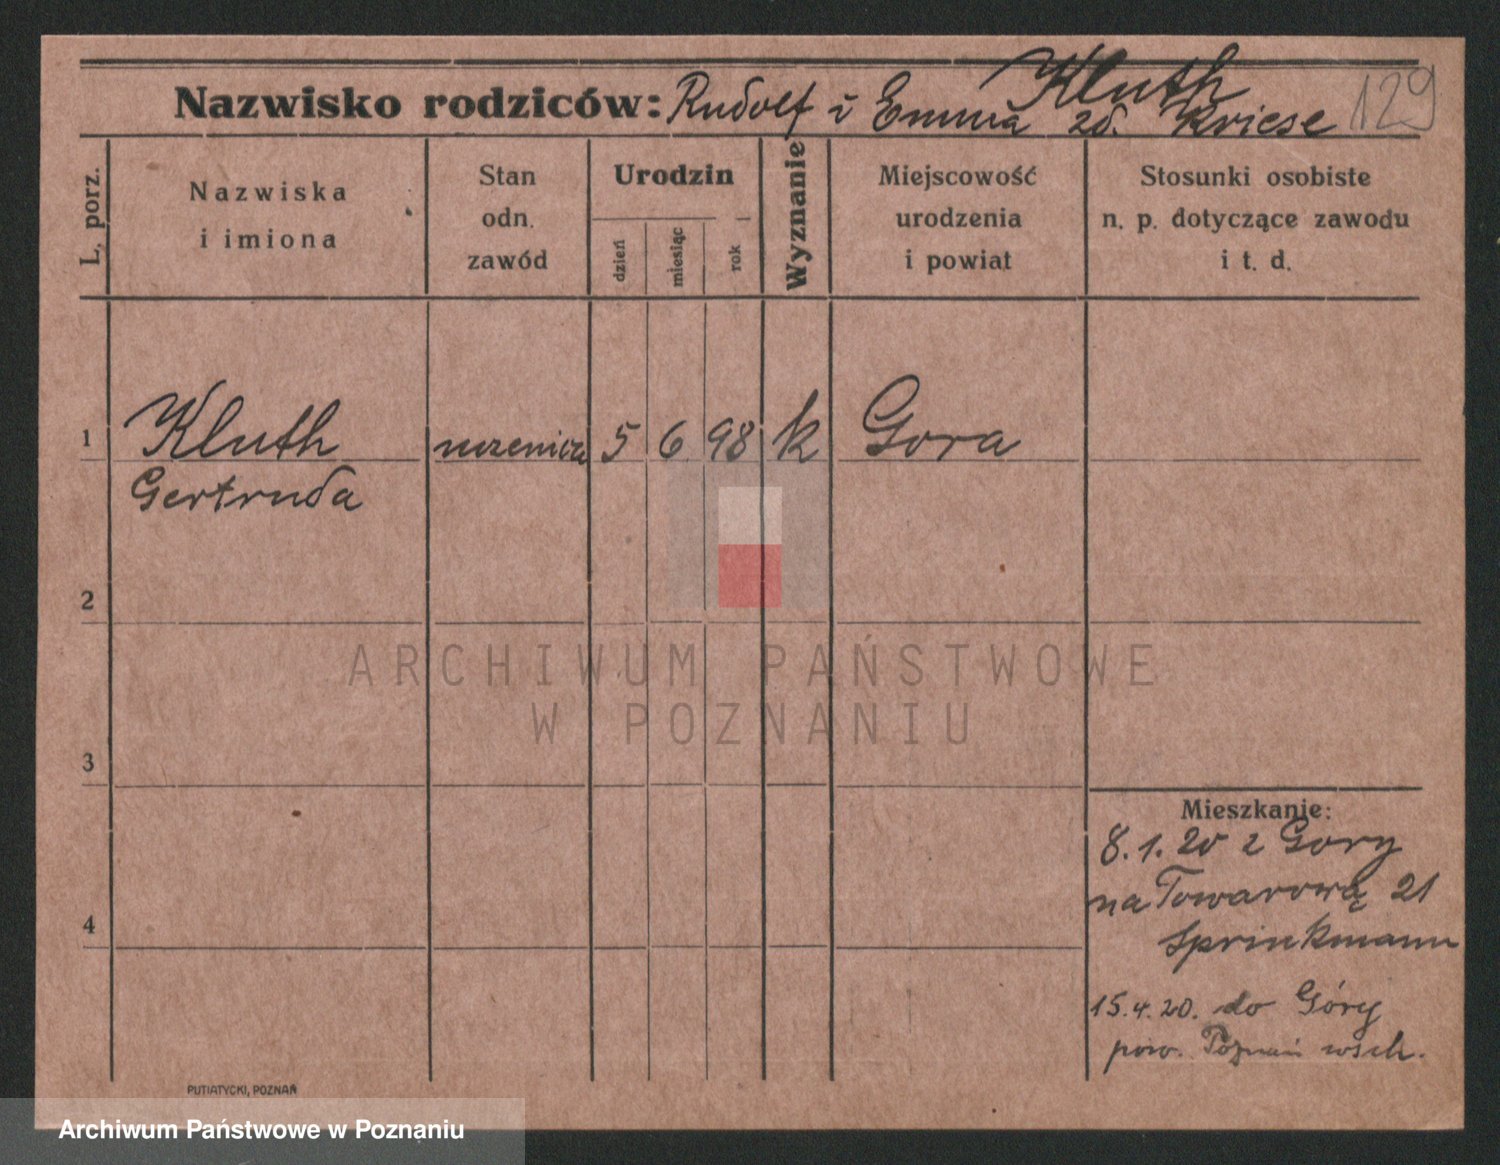 Kluth
Nazwisko rodziców: Rudolf i Emma zd. Kriese 129
L. porz.
Nazwiska
i imiona
Stan
odn.
zawód
Urodzin
dzień
miesiąc
rok
Wyznanie
Miejscowość
urodzenia
i powiat
Stosunki osobiste
n. p. dotyczące zawodu
i t. d.
1 Kluth uczenica 5 6 98 k Gora
Gertruda
2
ARCHIWUM PAŃSTWOWE
W POZNANIU
3
4
Mieszkanie:
8.1.20 z Gory
na Towarową 21
Sprinkmann
15.4.20. do Góry
pow. Poznań wsch.
PUTIATYCKI, POZNAŃ
Archiwum Państwowe w Poznaniu